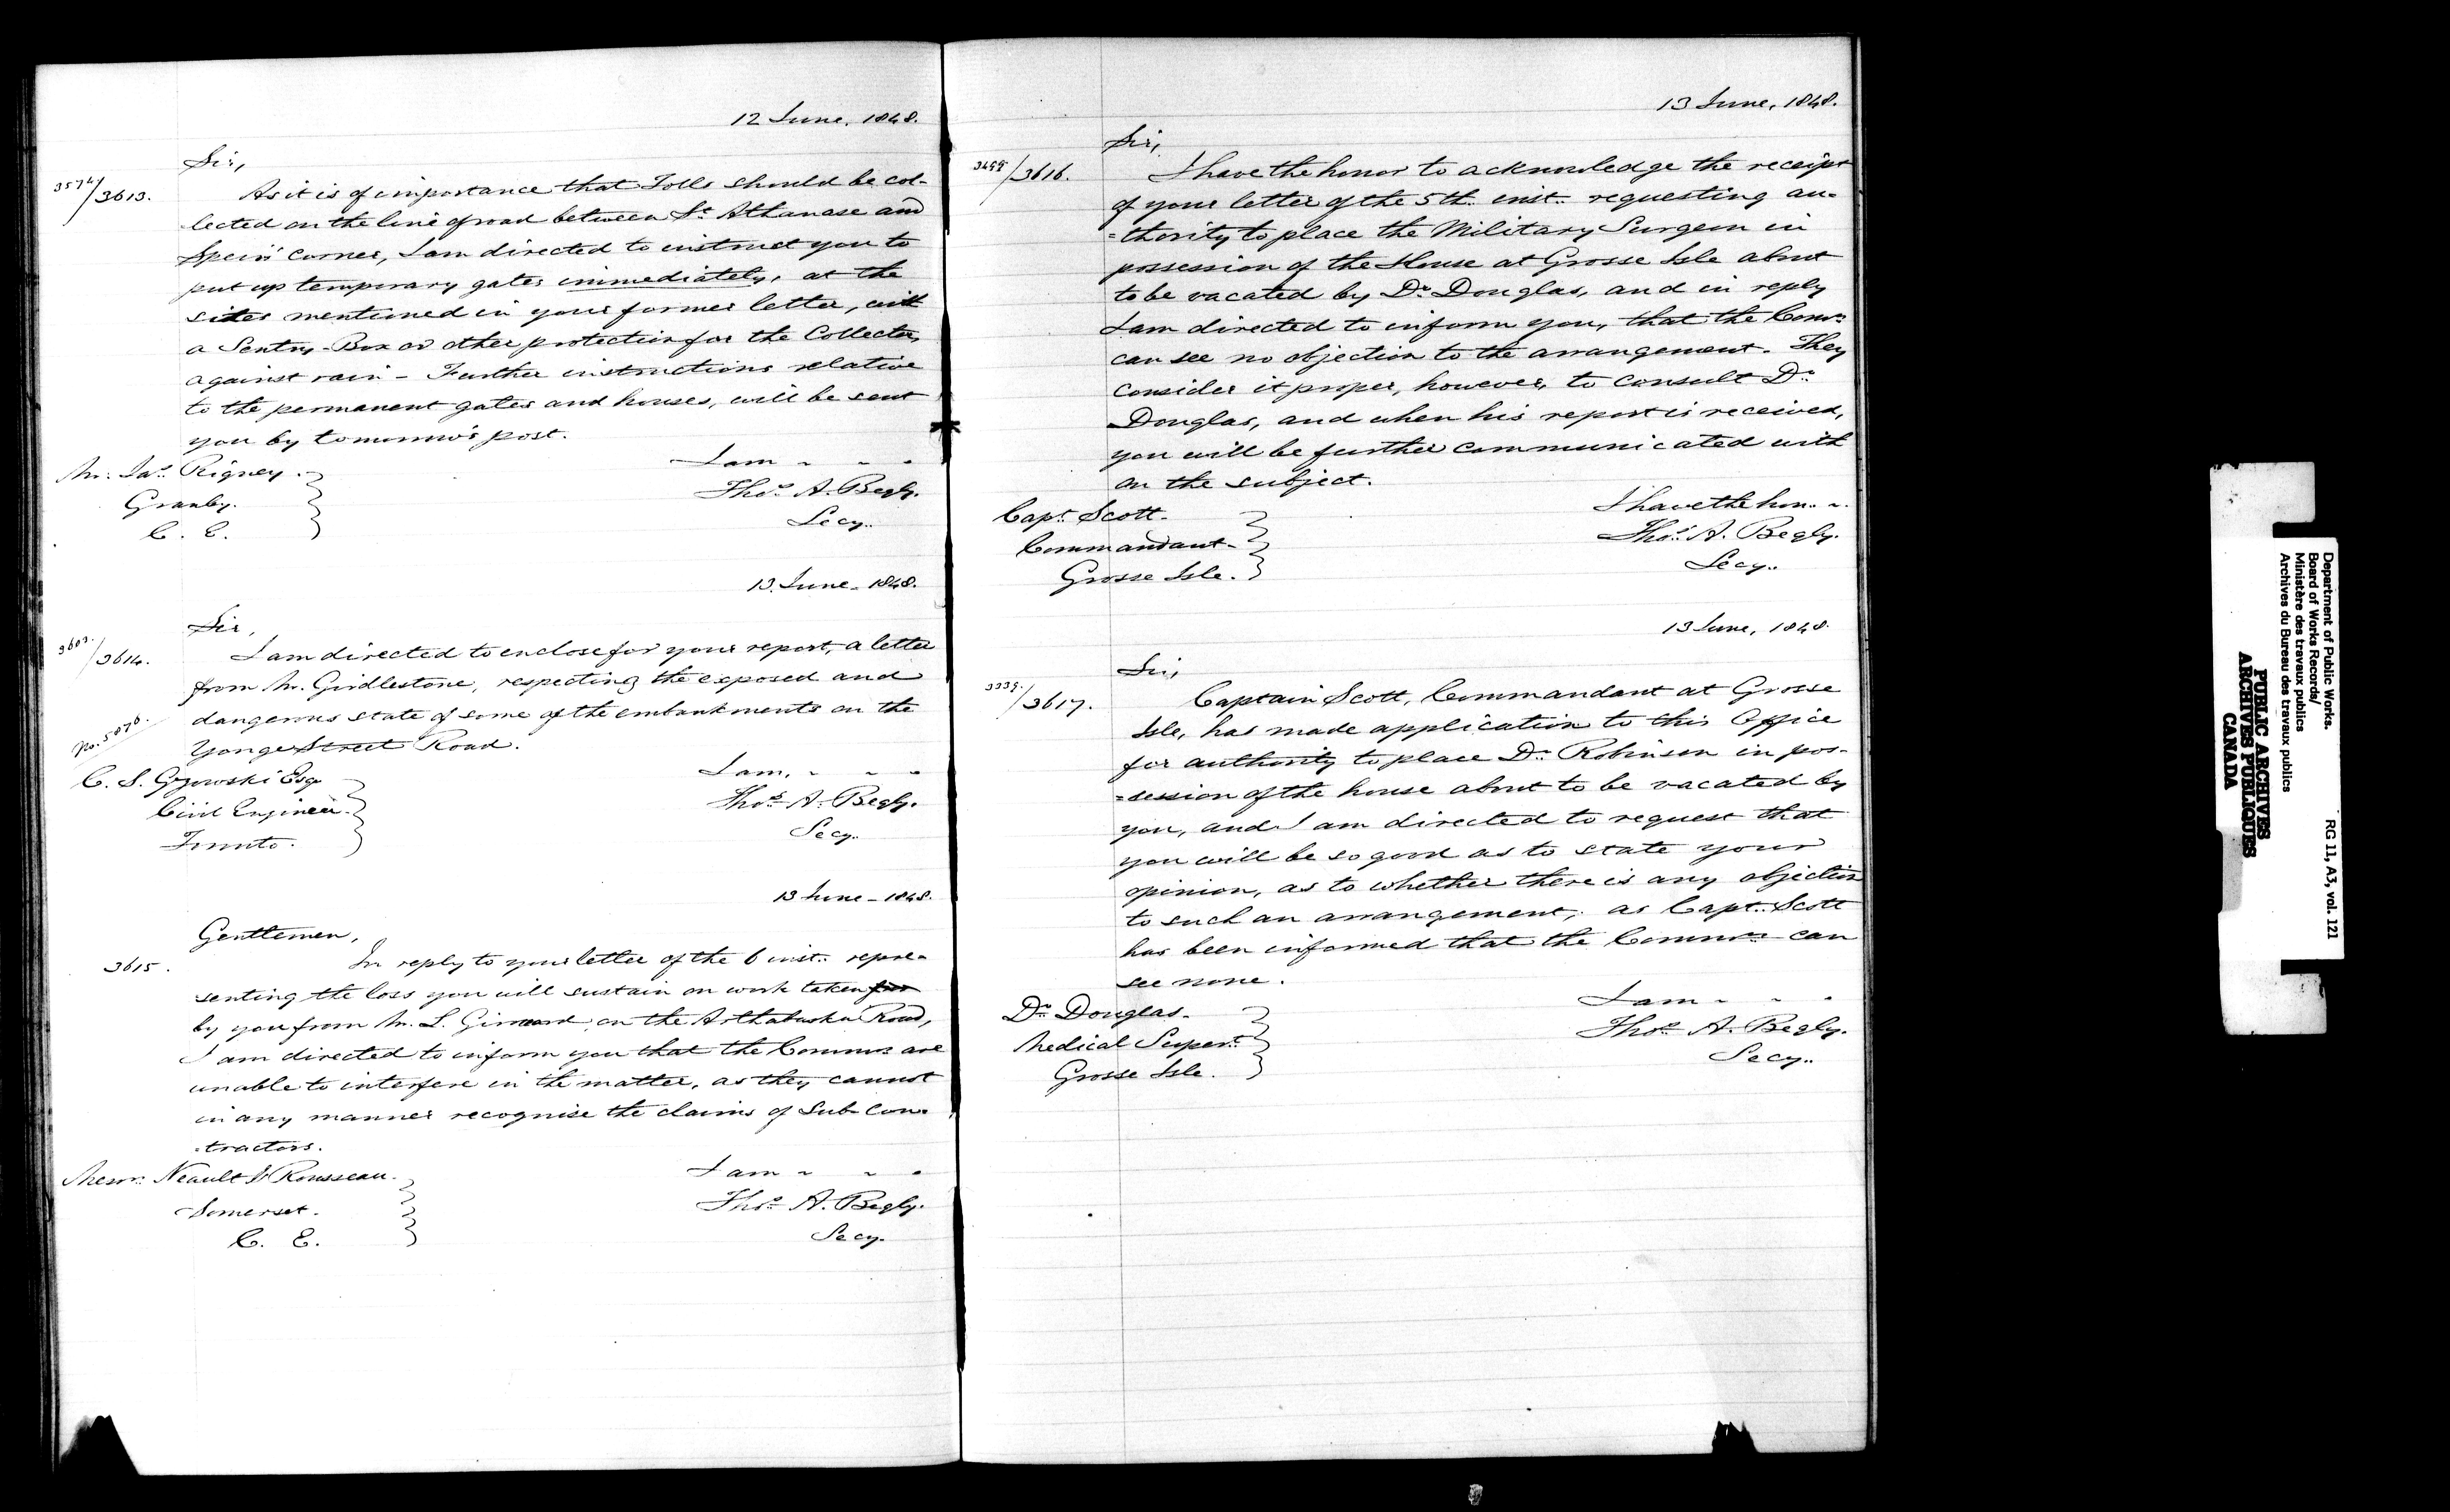 12 June. 1848.
Sir,
3574/3613.
As it is of importance that Tolls should be col-
lected on the line of road between St. Athanase and
Speirs' corner, I am directed to instruct you to
put up temporary gates immediately, at the
sites mentioned in your former letter, with
a Sentry-Box or other protection for the Collector,
against rain - Further instructions relative
to the permanent gates and houses, will be sent
you by tomorrow's post.
I am - - -
Mr. Jas. Rigney.
Thos. A. Begly.
Granby.
Secy.
C. E.
13. June - 1848.
Sir,
3603./3614.
I am directed to enclose for your report, a letter
from Mr. Girdlestone, respecting the exposed and
dangerous state of some of the embankments on the
Yonge Street Road.
C. S. Gzowski Esq
I am, - - -
Civil Engineer.
Thos. A. Begly.
Toronto.
Secy.
13 June - 1848.
Gentlemen,
3615.
In reply to your letter of the 6 inst. repre-
senting the loss you will sustain on work taken for
by you from Mr. L. on the Arthabaska Road,
I am directed to inform you that the Commrs are
unable to interfere in the matter, as they cannot
in any manner recognise the claims of Sub-Con-
-tractors.
Messrs. Neault & Rousseau.
I am - - -
Somerset.
Thos. A. Begly.
C. E.
Secy.
13 June, 1848.
Sir,
3499/3616.
I have the honor to acknowledge the receipt
of your letter of the 5th. inst. requesting au-
=thority to place the Military Surgeon in
possession of the House at Grosse Isle about
to be vacated by Dr. Douglas, and in reply
I am directed to inform you, that the Comrs
can see no objection to the arrangement. They
consider it proper, however, to consult Dr.
Douglas, and when his report is received,
you will be further communicated with
on the subject.
I have the hon. -.
Capt. Scott.
Commandant.
Thos. A. Begly.
Grosse Isle.
Secy.
13 June, 1848.
Sir,
3339./3617.
Captain Scott, Commandant at Grosse
Isle, has made application to this Office
for authority to place Dr. Robinson in pos-
=session of the house about to be vacated by
you, and I am directed to request that
you will be so good as to state your
opinion, as to whether there is any objection
to such an arrangement, as Capt. Scott
has been informed that the Commrs can
see none.
I am - - -
Dr. Douglas.
Thos. A. Begly.
Medical Supert.
Secy.
Grosse Isle.
Department of Public Works.
Board of Works Records/
Ministère des travaux publics
Archives du Bureau des travaux publics
RG 11, A3, vol. 121
PUBLIC ARCHIVES
ARCHIVES PUBLIQUES
CANADA